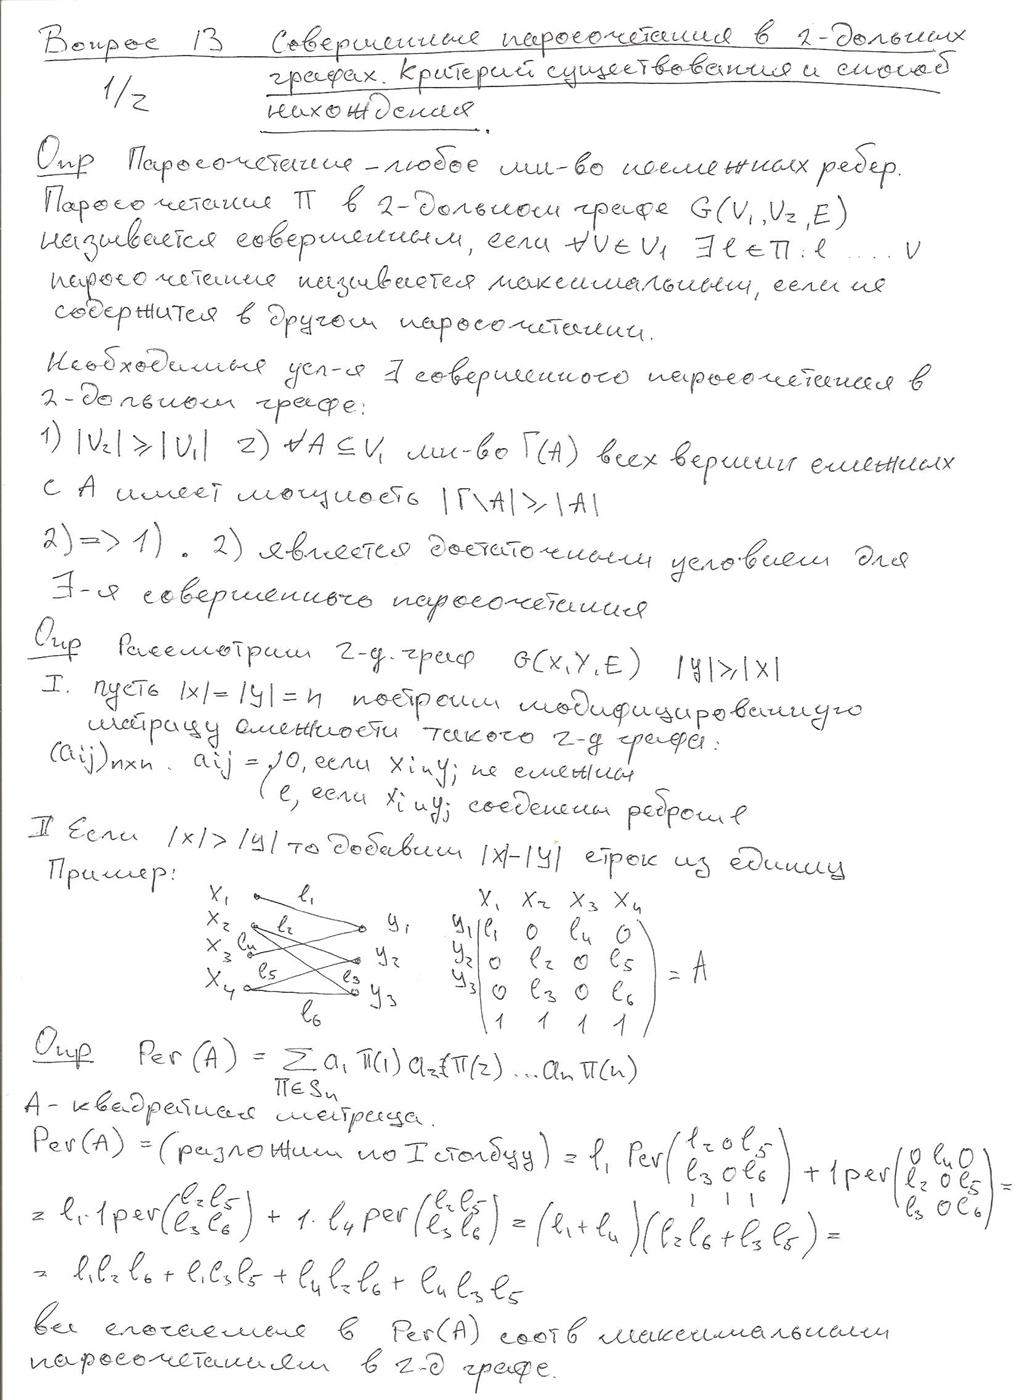 Вопрос 13 Совершенные паросочетания в 2-дольных
графах. Критерий существования и способ
1/2
нахождения.
Опр Паросочетание – любое мн-во несмежных ребер.
Паросочетание П в 2-дольном графе G(V₁,V₂,E)
называется совершенным, если ∀V∈V₁ ∃l∈П:l .... V
паросочетание называется максимальным, если не
содержится в другом паросочетании.
Необходимые усл-я ∃ совершенного паросочетания в
2-дольном графе:
1) |V₂|≥|V₁| 2) ∀A⊆V₁ мн-во Г(A) всех вершин смежных
с A имеет мощность |Г\A|≥|A|
2)=>1). 2) является достаточным условием для
∃-я совершенного паросочетания
Опр Рассмотрим 2-д. граф G(X,Y,E) |y|≥|x|
I. пусть |x|=|y|=n построим модифицированную
матрицу смежности такого 2-д графа:
(aij)n×n. aij = {0, если xi и yj не смежны
l, если xi и yj соеденены ребром l
II Если |x|>|y| то добавим |x|-|y| строк из единиц
Пример:
x₁ l₁ y₁
x₂ l₂ y₂
x₃ l₄ l₃ y₃
x₄ l₅ l₆
x₁ x₂ x₃ x₄
y₁ l₁ 0 l₄ 0
y₂ 0 l₂ 0 l₅
y₃ 0 l₃ 0 l₆
1 1 1 1
= A
Опр Per(A) = ∑ a₁π(1) a₂π(2) ... anπ(n)
π∈Sn
A - квадратная матрица.
Per(A) = (разложим по I столбцу) = l₁ Per(l₂ 0 l₅ l₃ 0 l₆ 1 1 1) + 1per(0 l₄ 0 l₂ 0 l₅ l₃ 0 l₆) =
= l₁·1per(l₂ l₅ l₃ l₆) + 1·l₄per(l₂ l₅ l₃ l₆) = (l₁+l₄)(l₂l₆+l₃l₅) =
= l₁l₂l₆ + l₁l₃l₅ + l₄l₂l₆ + l₄l₃l₅
все слогаемые в Per(A) соотв максимальными
паросочетаниям в 2-д графе.